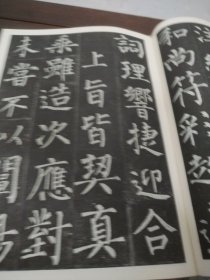 和尚符彩
詞理響捷迎合
上旨皆契真
乘雖造次應對
未嘗不以闡揚